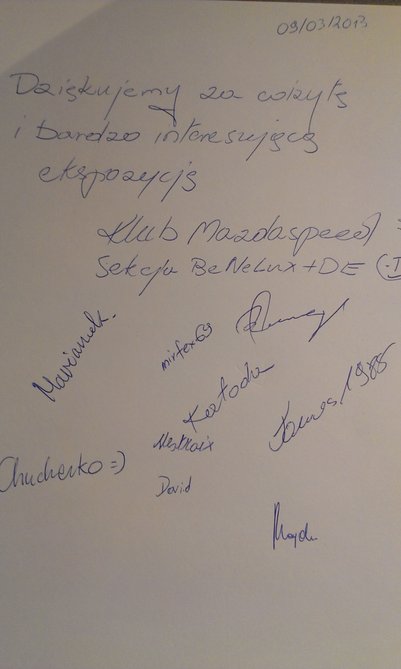 09/03/2013
Dziękujemy za wizytę
i bardzo interesującą
ekspozycję
Klub Mazdaspeed
Sekcja BeNeLux+DE
Marianek.
mirfex69
Katoda
James1985
Nestkaix
Chucherko =)
David
Magda